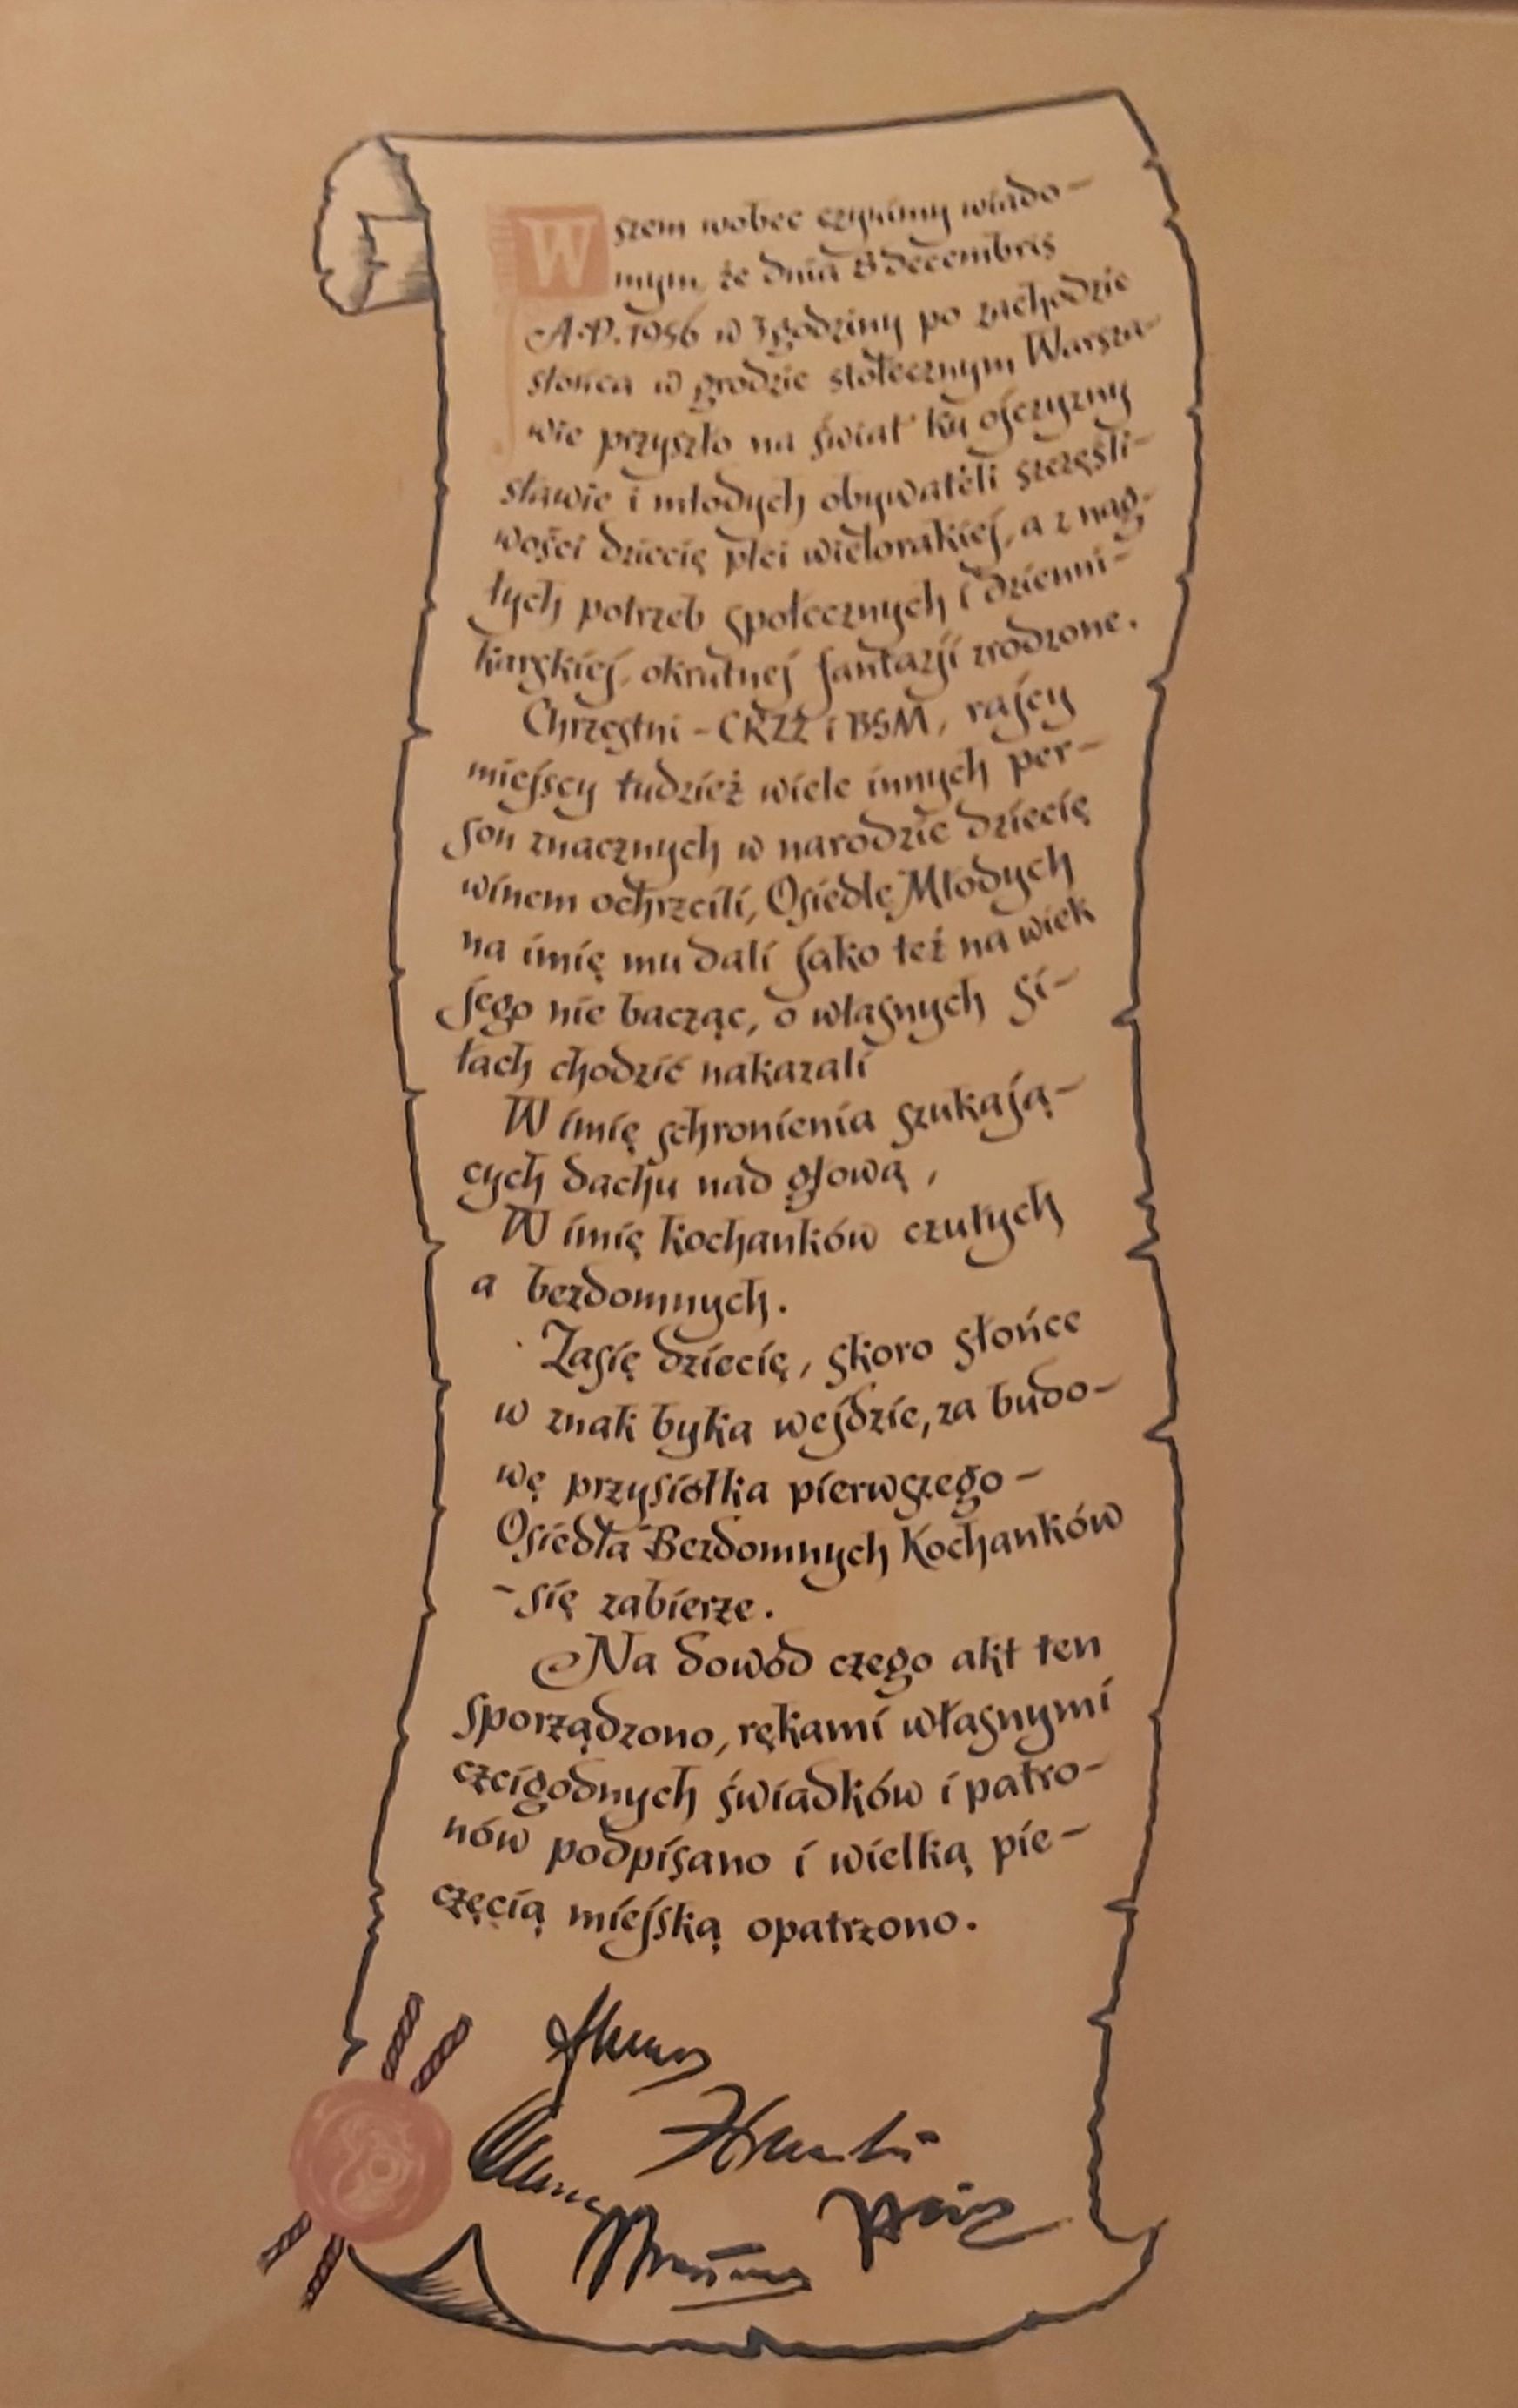 Wszem wobec czynimy wiado-
mym, że dnia 8 decembris
A.D. 1956 w 3 godziny po zachodzie
słońca w grodzie stołecznym Warsza-
wie przyszło na świat ku ojczyzny
sławie i młodych obywateli szczęśli-
wości dziecię płci wielorakiej, a z nag-
łych potrzeb społecznych i dzienni-
karskiej, okrutnej fantazji zrodzone.
Chrzestni - CRZZ i BSM, rajcy
miejscy tudzież wiele innych per-
son znacznych w narodzie dziecię
winem ochrzcili, Osiedle Młodych
na imię mu dali jako też na wiek
jego nie bacząc, o własnych si-
łach chodzić nakazali
W imię schronienia szukają-
cych dachu nad głową,
W imię kochanków czułych
a bezdomnych.
Zasię dziecię, skoro słońce
w znak byka wejdzie, za budo-
wę przysiółka pierwszego -
Osiedla Bezdomnych Kochanków
- się zabierze.
Na dowód czego akt ten
sporządzono, rękami własnymi
czcigodnych świadków i patro-
nów podpisano i wielką pie-
częcią miejską opatrzono.